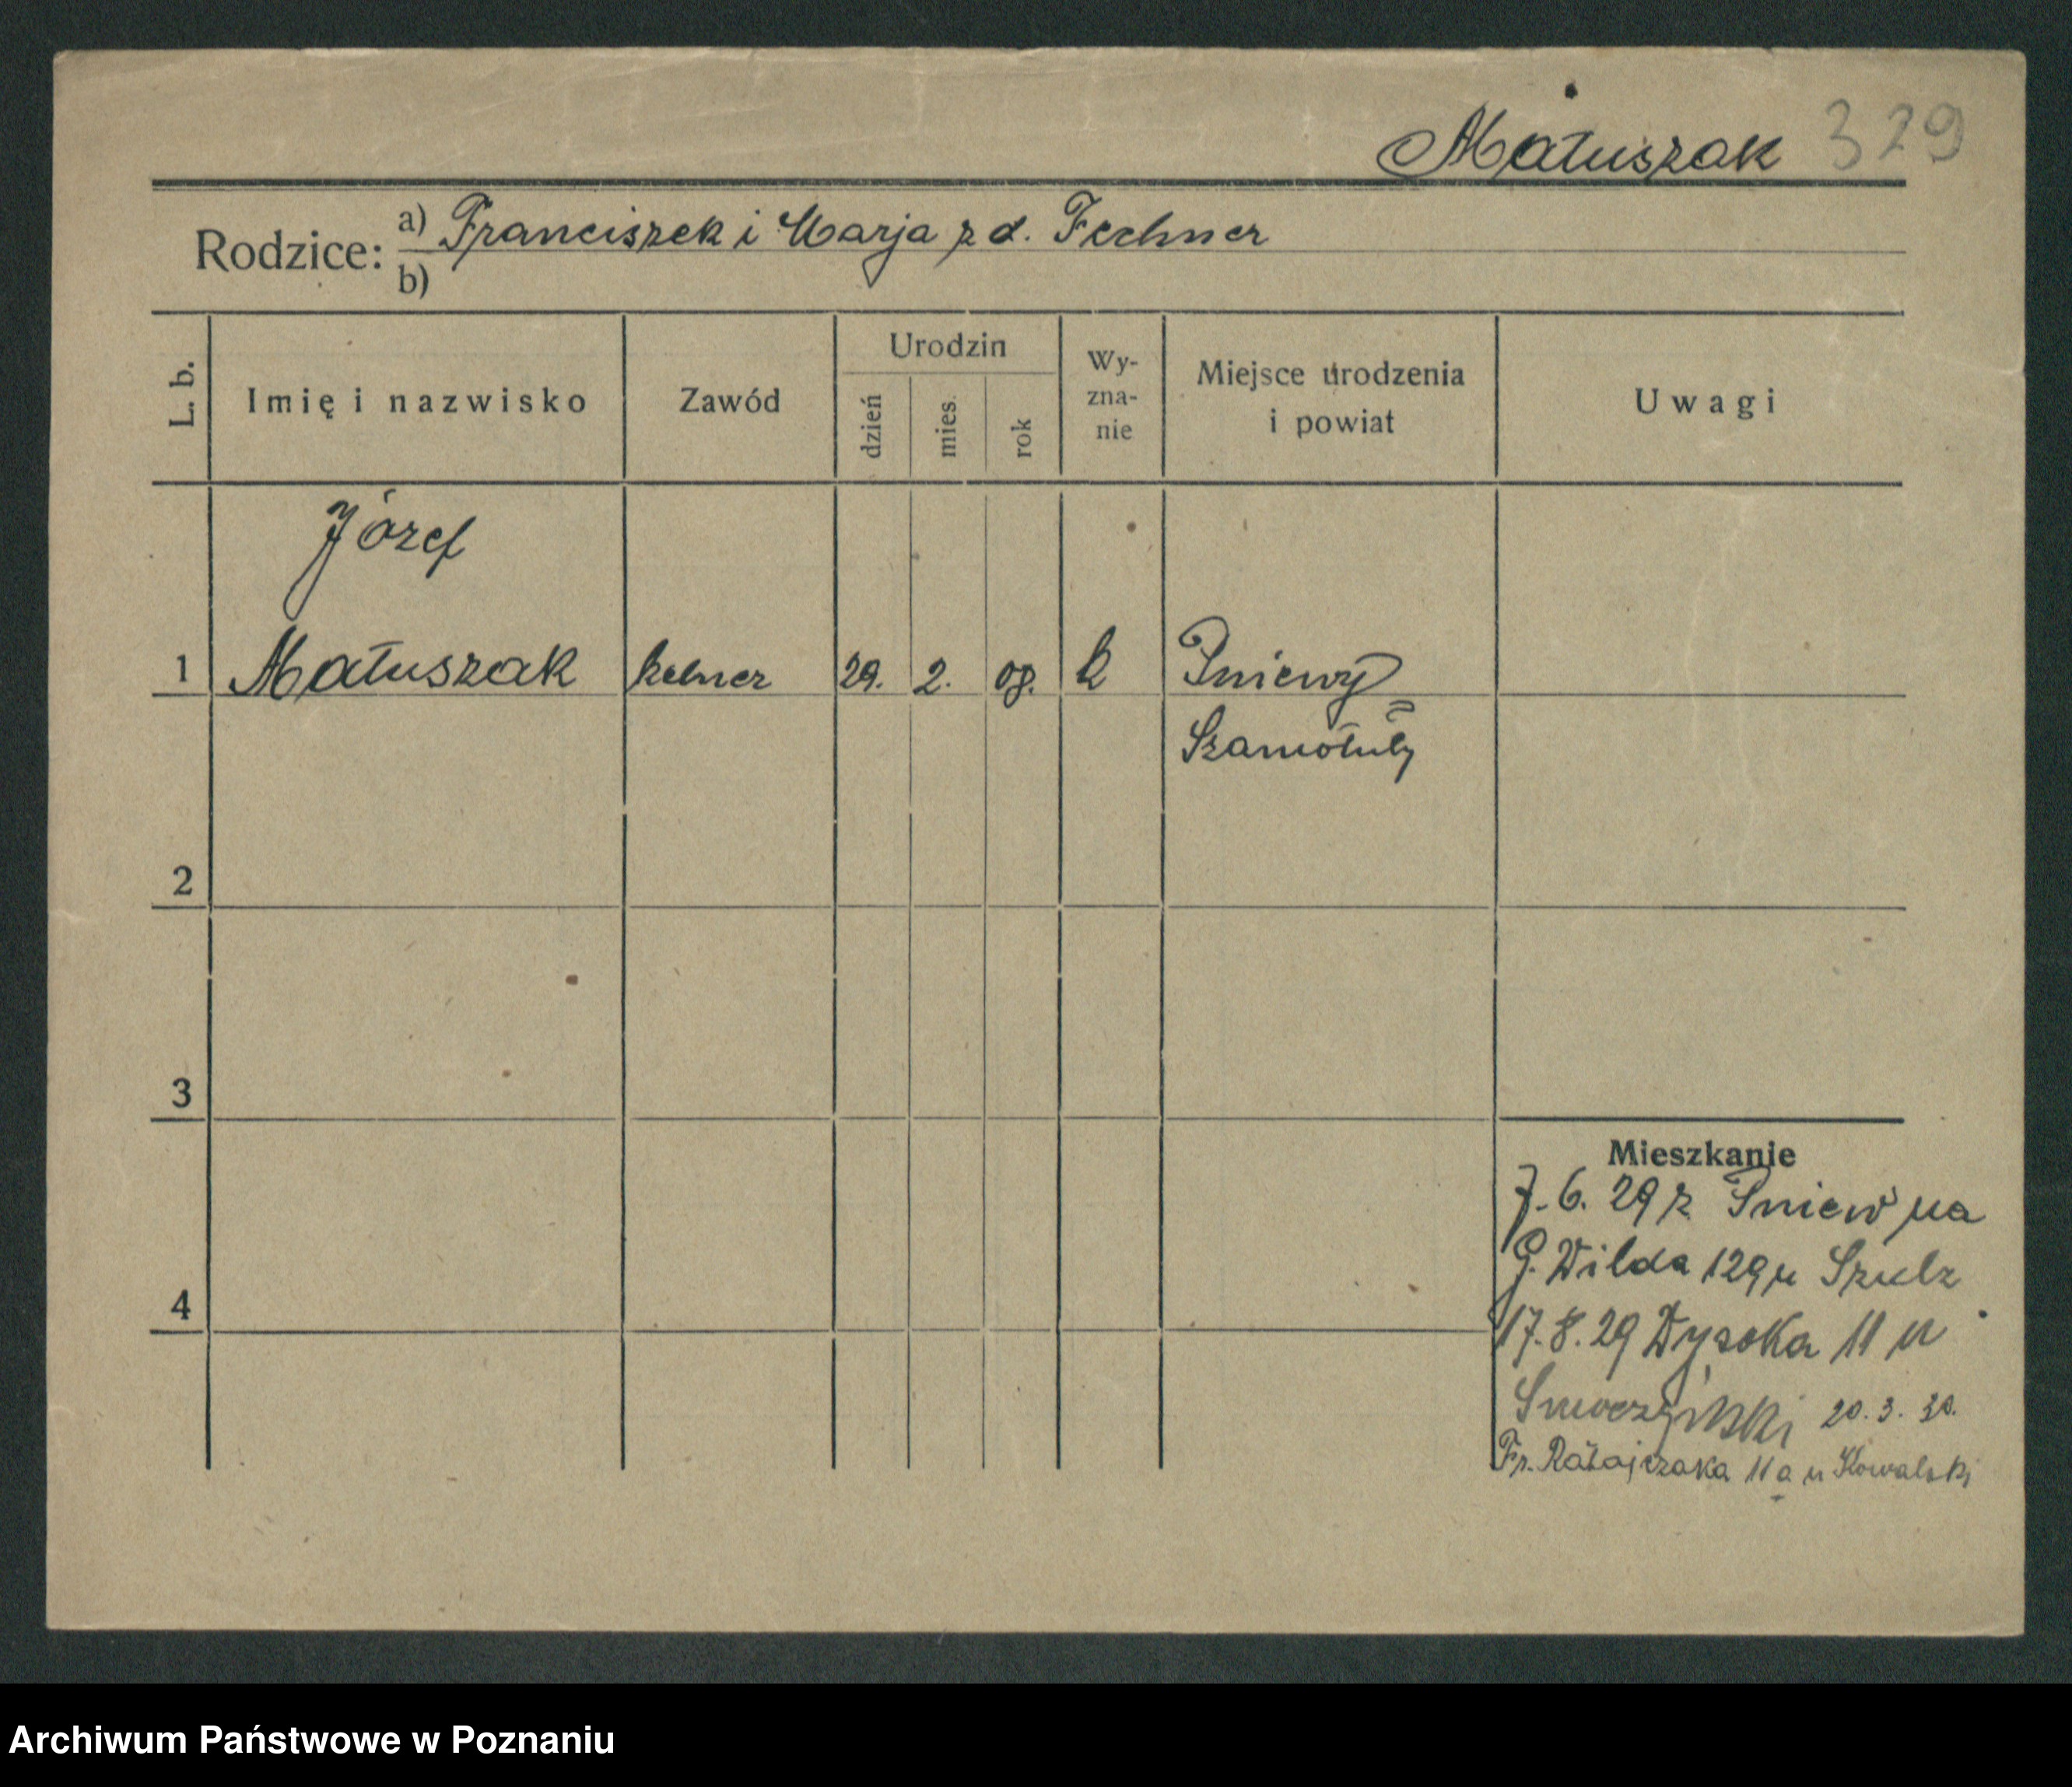 Matuszak 329
Rodzice: a) Franciszek i Marja z d. Fechner
b)
L. b.
Imię i nazwisko
Zawód
Urodzin
dzień
mies.
rok
Wy-
zna-
nie
Miejsce urodzenia
i powiat
Uwagi
Józef
1 Matuszak kelner 29. 2. 08. k Pniewy
Szamotuły
2
3
4
Mieszkanie
7.6.29 z Pniew na
G. Wilda 129 u Szulz
17.8.29 Wysoka 11 u
20.3.30.
Fr. Ratajczaka 11a u Kowalski
Archiwum Państwowe w Poznaniu